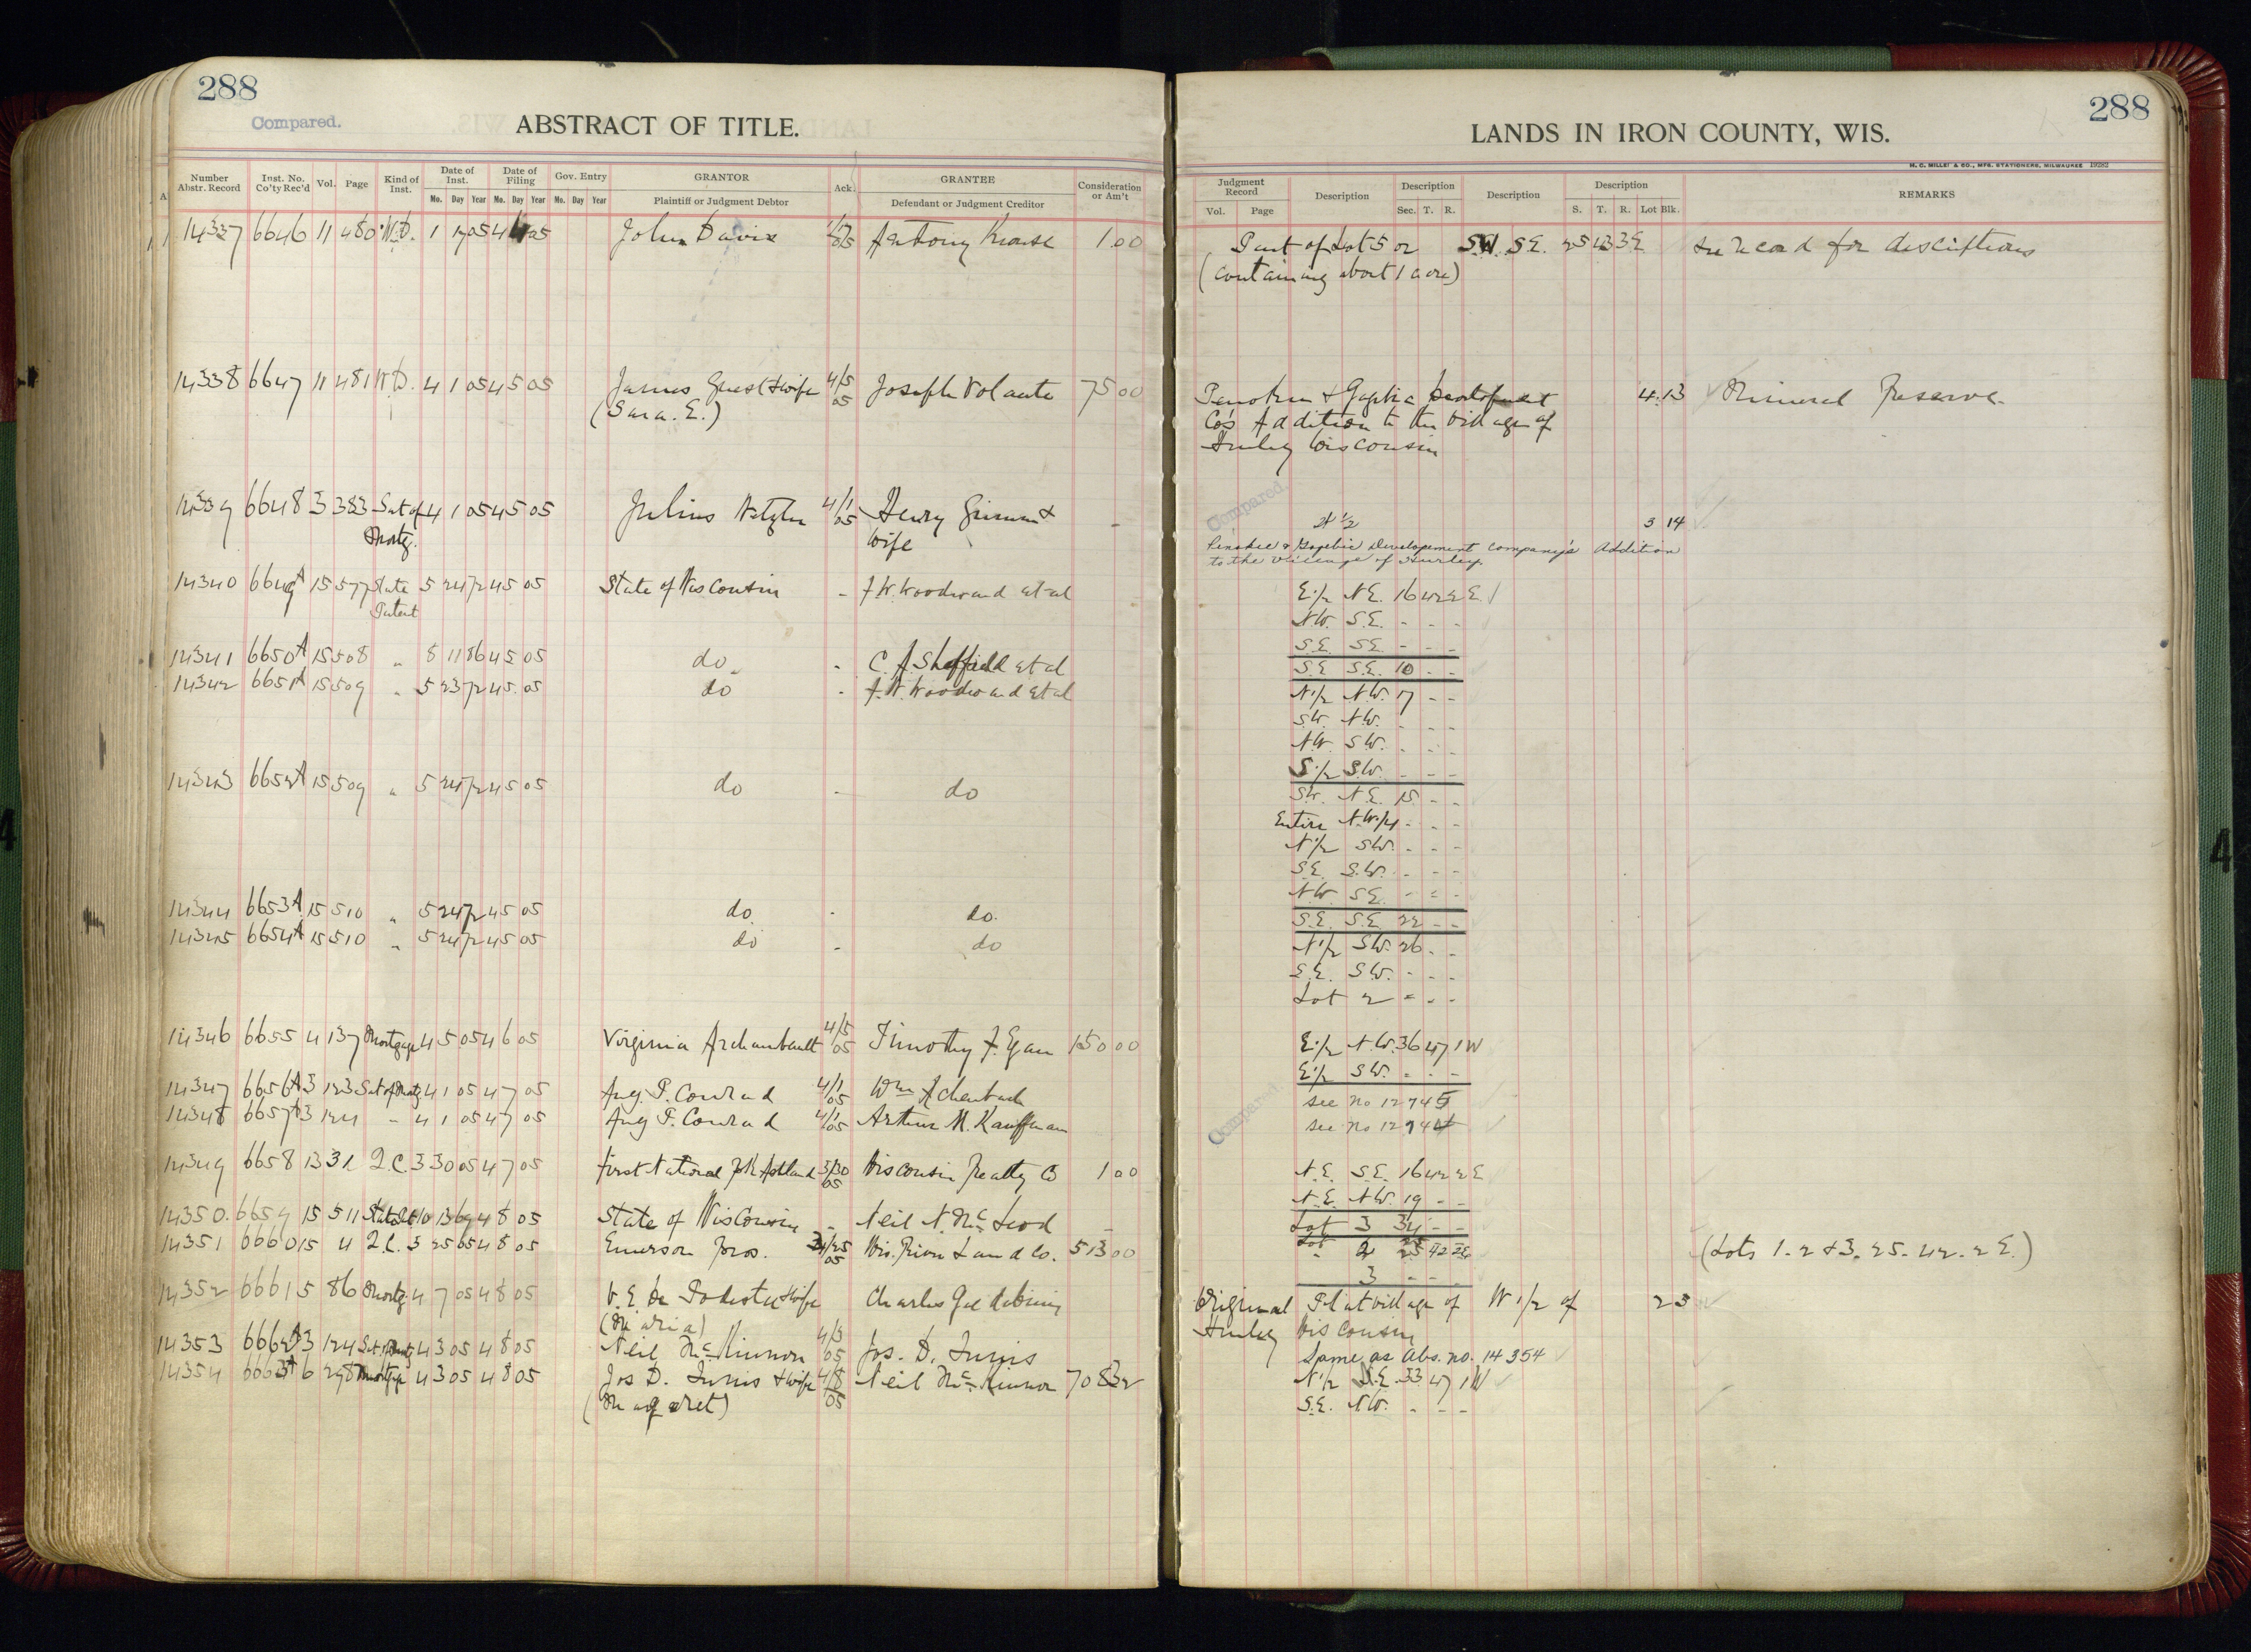 288
Compared.
ABSTRACT OF TITLE.
Number Abstr. Record Inst. No. Co'ty Rec'd Vol. Page Kind of Inst. Date of Inst. Date of Filing Gov. Entry GRANTOR Ack. GRANTEE Consideration or Am't
Mo. Day Year Mo. Day Year Mo. Day Year Plaintiff or Judgment Debtor Defendant or Judgment Creditor
14337 6646 11 480 W.D. 1 17 05 4 4 05 John Davis Antony Krause 1.00
14338 6647 11 481 W.D. 4 1 05 4 5 05 James Guest & wife 4/5 05 Joseph Volante 75 00
(Sara. E.)
14339 6648 3 383 Sat of 4 1 05 4 5 05 Julius 4/1 05 Henry Grimm &
Mortg. Wife
14340 6649A 15 577 State 5 24 72 4 5 05 State of Wisconsin - J.W. Woodward et al
Patent
14341 6650A 15 508 " 8 11 86 4 5 05 do - C. A Sheffield et al
14342 6651A 15 509 " 5 23 72 4 5 05 do - J. W. Woodward et al
14343 6652A 15 509 " 5 24 72 4 5 05 do - do
14344 6653A 15 510 " 5 24 72 4 5 05 do - do.
14345 6654A 15 510 " 5 24 72 4 5 05 do - do
14346 6655 4 137 Mortgage 4 5 05 4 6 05 Virginia Archambault 4/5 05 Timothy F. Egan 150 00
14347 6656A 3 123 Sat of Mortg 4 1 05 4 7 05 Aug. P. Conrad 4/1 05 Wm Achenbach
14348 6657A 3 124 " 4 1 05 4 7 05 Aug P. Conrad 4/1 05 Arthur M. Kauffman
14349 6658 13 31 Q.C. 3 30 05 4 7 05 First National Bk Ashland 3/30 05 Wisconsin Realty Co 1 00
14350 6659 15 511 10 13 69 4 8 05 State of Wisconsin - Neil N. McLeod -
14351 6660 15 4 Q.C. 3 25 05 4 8 05 Emerson Bros. Wis. River Land Co. 513 00
14352 6661 5 86 Mortg. 4 7 05 4 8 05 V. E. De Podesta & wife Charles
(Maria)
14353 6662A 3 124 Sat. Mortg 4 3 05 4 8 05 Neil McKinnon 4/3 05 Jos. D. Innis
14354 6663A 6 298 Mortgage 4 3 05 4 8 05 Jos D. Innis & wife 4/8 05 Neil McKinnon 708 32
(Margaret)
288
LANDS IN IRON COUNTY, WIS.
H. C. MILLER CO., MFG. STATIONERS, MILWAUKEE 19282
Judgment Record Description Description Description Description REMARKS
Vol. Page Sec. T. R. S. T. R. Lot Blk.
Part of Lot 5 or S.W. S.E. 25 43 3E see record for descriptions
(containing about 1 acre)
Penokee & Gogebic Development 4 13 Mineral Reserve.
Co's Addition to the Village of
Hurley Wisconsin
Compared.
N 1/2 3 14
Penokee & Gogebic Developement Company's Addition
to the Village of Hurley.
E 1/2 N.E. 16 42 2 E.
N.W. S.E. - - -
S.E. S.E. - - -
S.E. S.E. 10 - -
N 1/2 N.W. 17 - -
S.W. N.W. - - -
N.W. S.W. - - -
S 1/2 S.W. - - -
S.W. N.E. 15 - -
Entire N.W. 1/4 - - -
N 1/2 S.W. - - -
S.E. S.W. - - -
N.W. S.E. - - -
S.E. S.E. 22 - -
N 1/2 S.W. 26 - -
S.E. S.W. - - -
Lot 2 - - -
E 1/2 N.W. 36 47 1W
E 1/2 S.W. - - -
Compared.
see no 12745
see no 12744
N.E. S.E. 16 42 2 E
N.E. N.W. 19 - -
Lot 3 34 - -
Lot 2 25 42 2E (Lots 1-2 & 3. 25-42-2 E.)
3 - - -
Original Plat Village of W 1/2 of 2 3
Hurley Wisconsin
Same as Abs. no. 14354
N 1/2 S.E. 33 47 1W
S.E. N.W. - - -